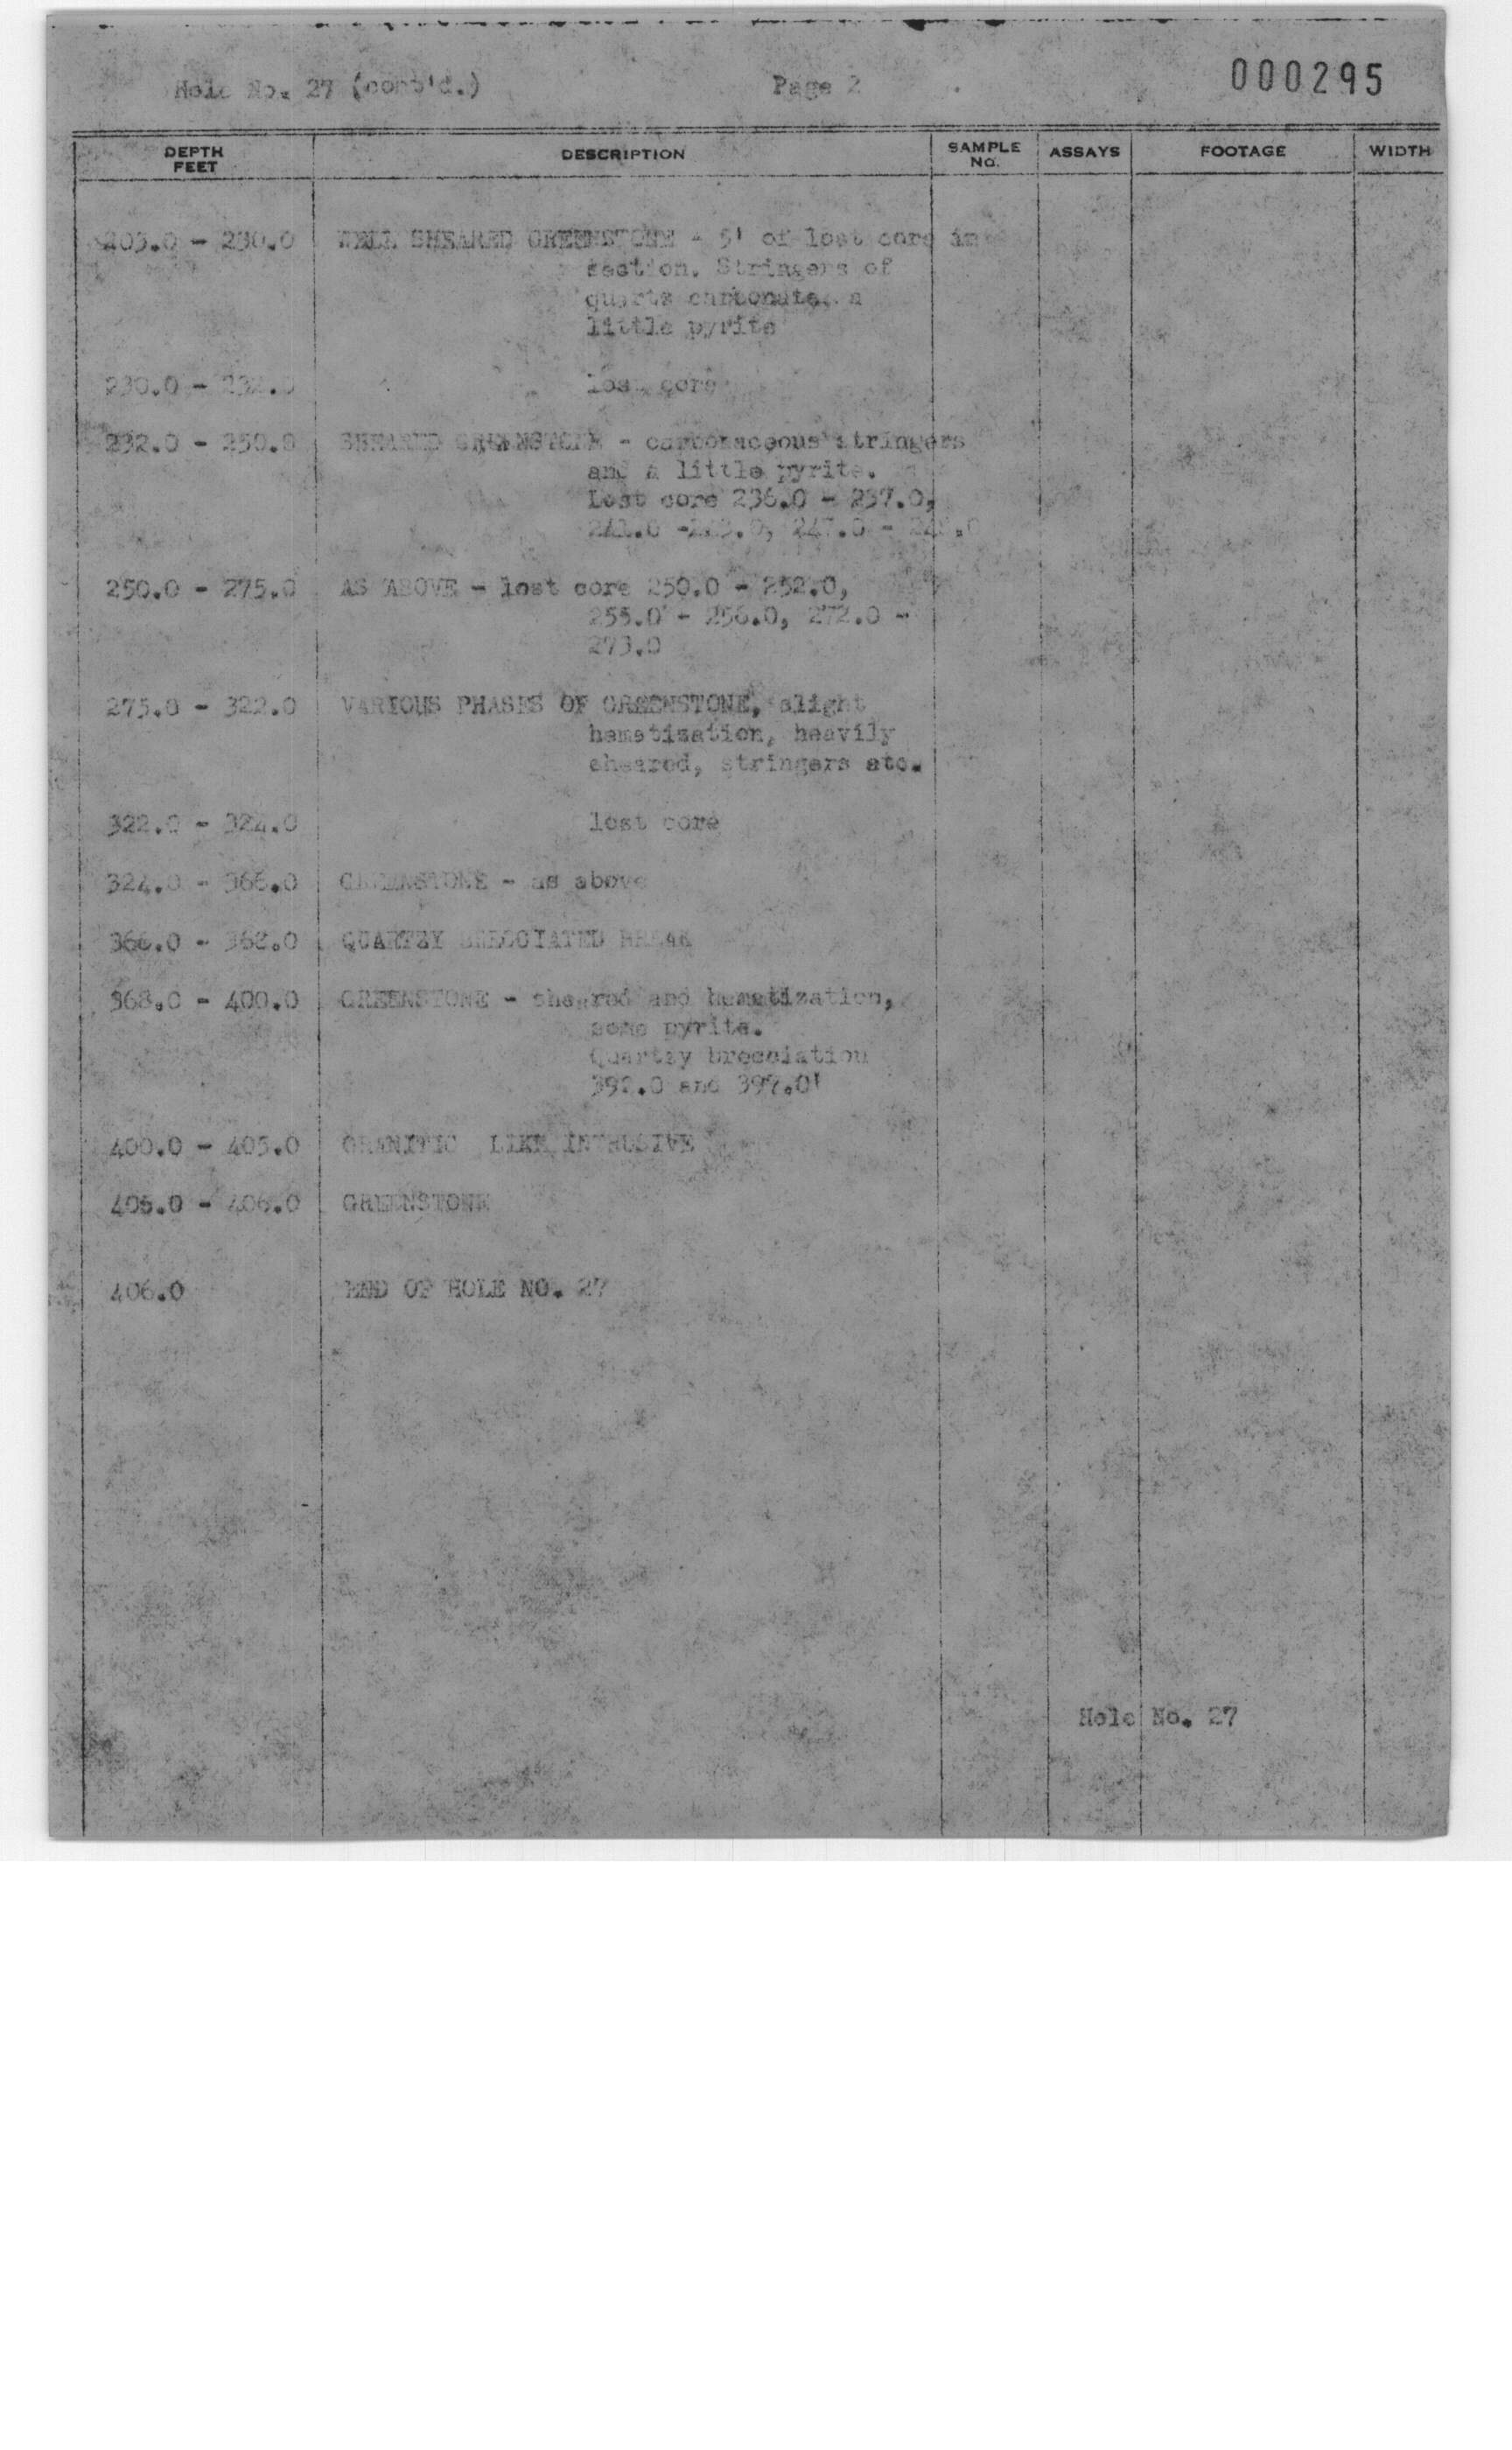 Hole No. 27 (cont'd.) Page 2 000295
DEPTH FEET DESCRIPTION SAMPLE No. ASSAYS FOOTAGE WIDTH
203.0 - 230.0 WELL SHEARED GREENSTONE - 5' of lost core in
section. Stringers of
quartz carbonate, a
little pyrite
230.0 - 232.0 lost core
232.0 - 250.0 SHEARED GREENSTONE - carbonaceous stringers
and a little pyrite.
Lost core 236.0 - 237.0,
241.0 - 247.0 -
250.0 - 275.0 AS ABOVE - lost core 250.0 - 252.0,
255.0 - 256.0, 272.0 -
273.0
275.0 - 322.0 VARIOUS PHASES OF GREENSTONE, slight
hematization, heavily
sheared, stringers etc.
322.0 - 324.0 lost core
324.0 - 366.0 GREENSTONE - as above
366.0 - 368.0 QUARTZY BRECCIATED BREAK
368.0 - 400.0 GREENSTONE - sheared and hematization,
some pyrite.
Quartzy brecciation
and
400.0 - 405.0 GRANITIC LIKE INTRUSIVE
405.0 - 406.0 GREENSTONE
406.0 END OF HOLE NO. 27
Hole No. 27